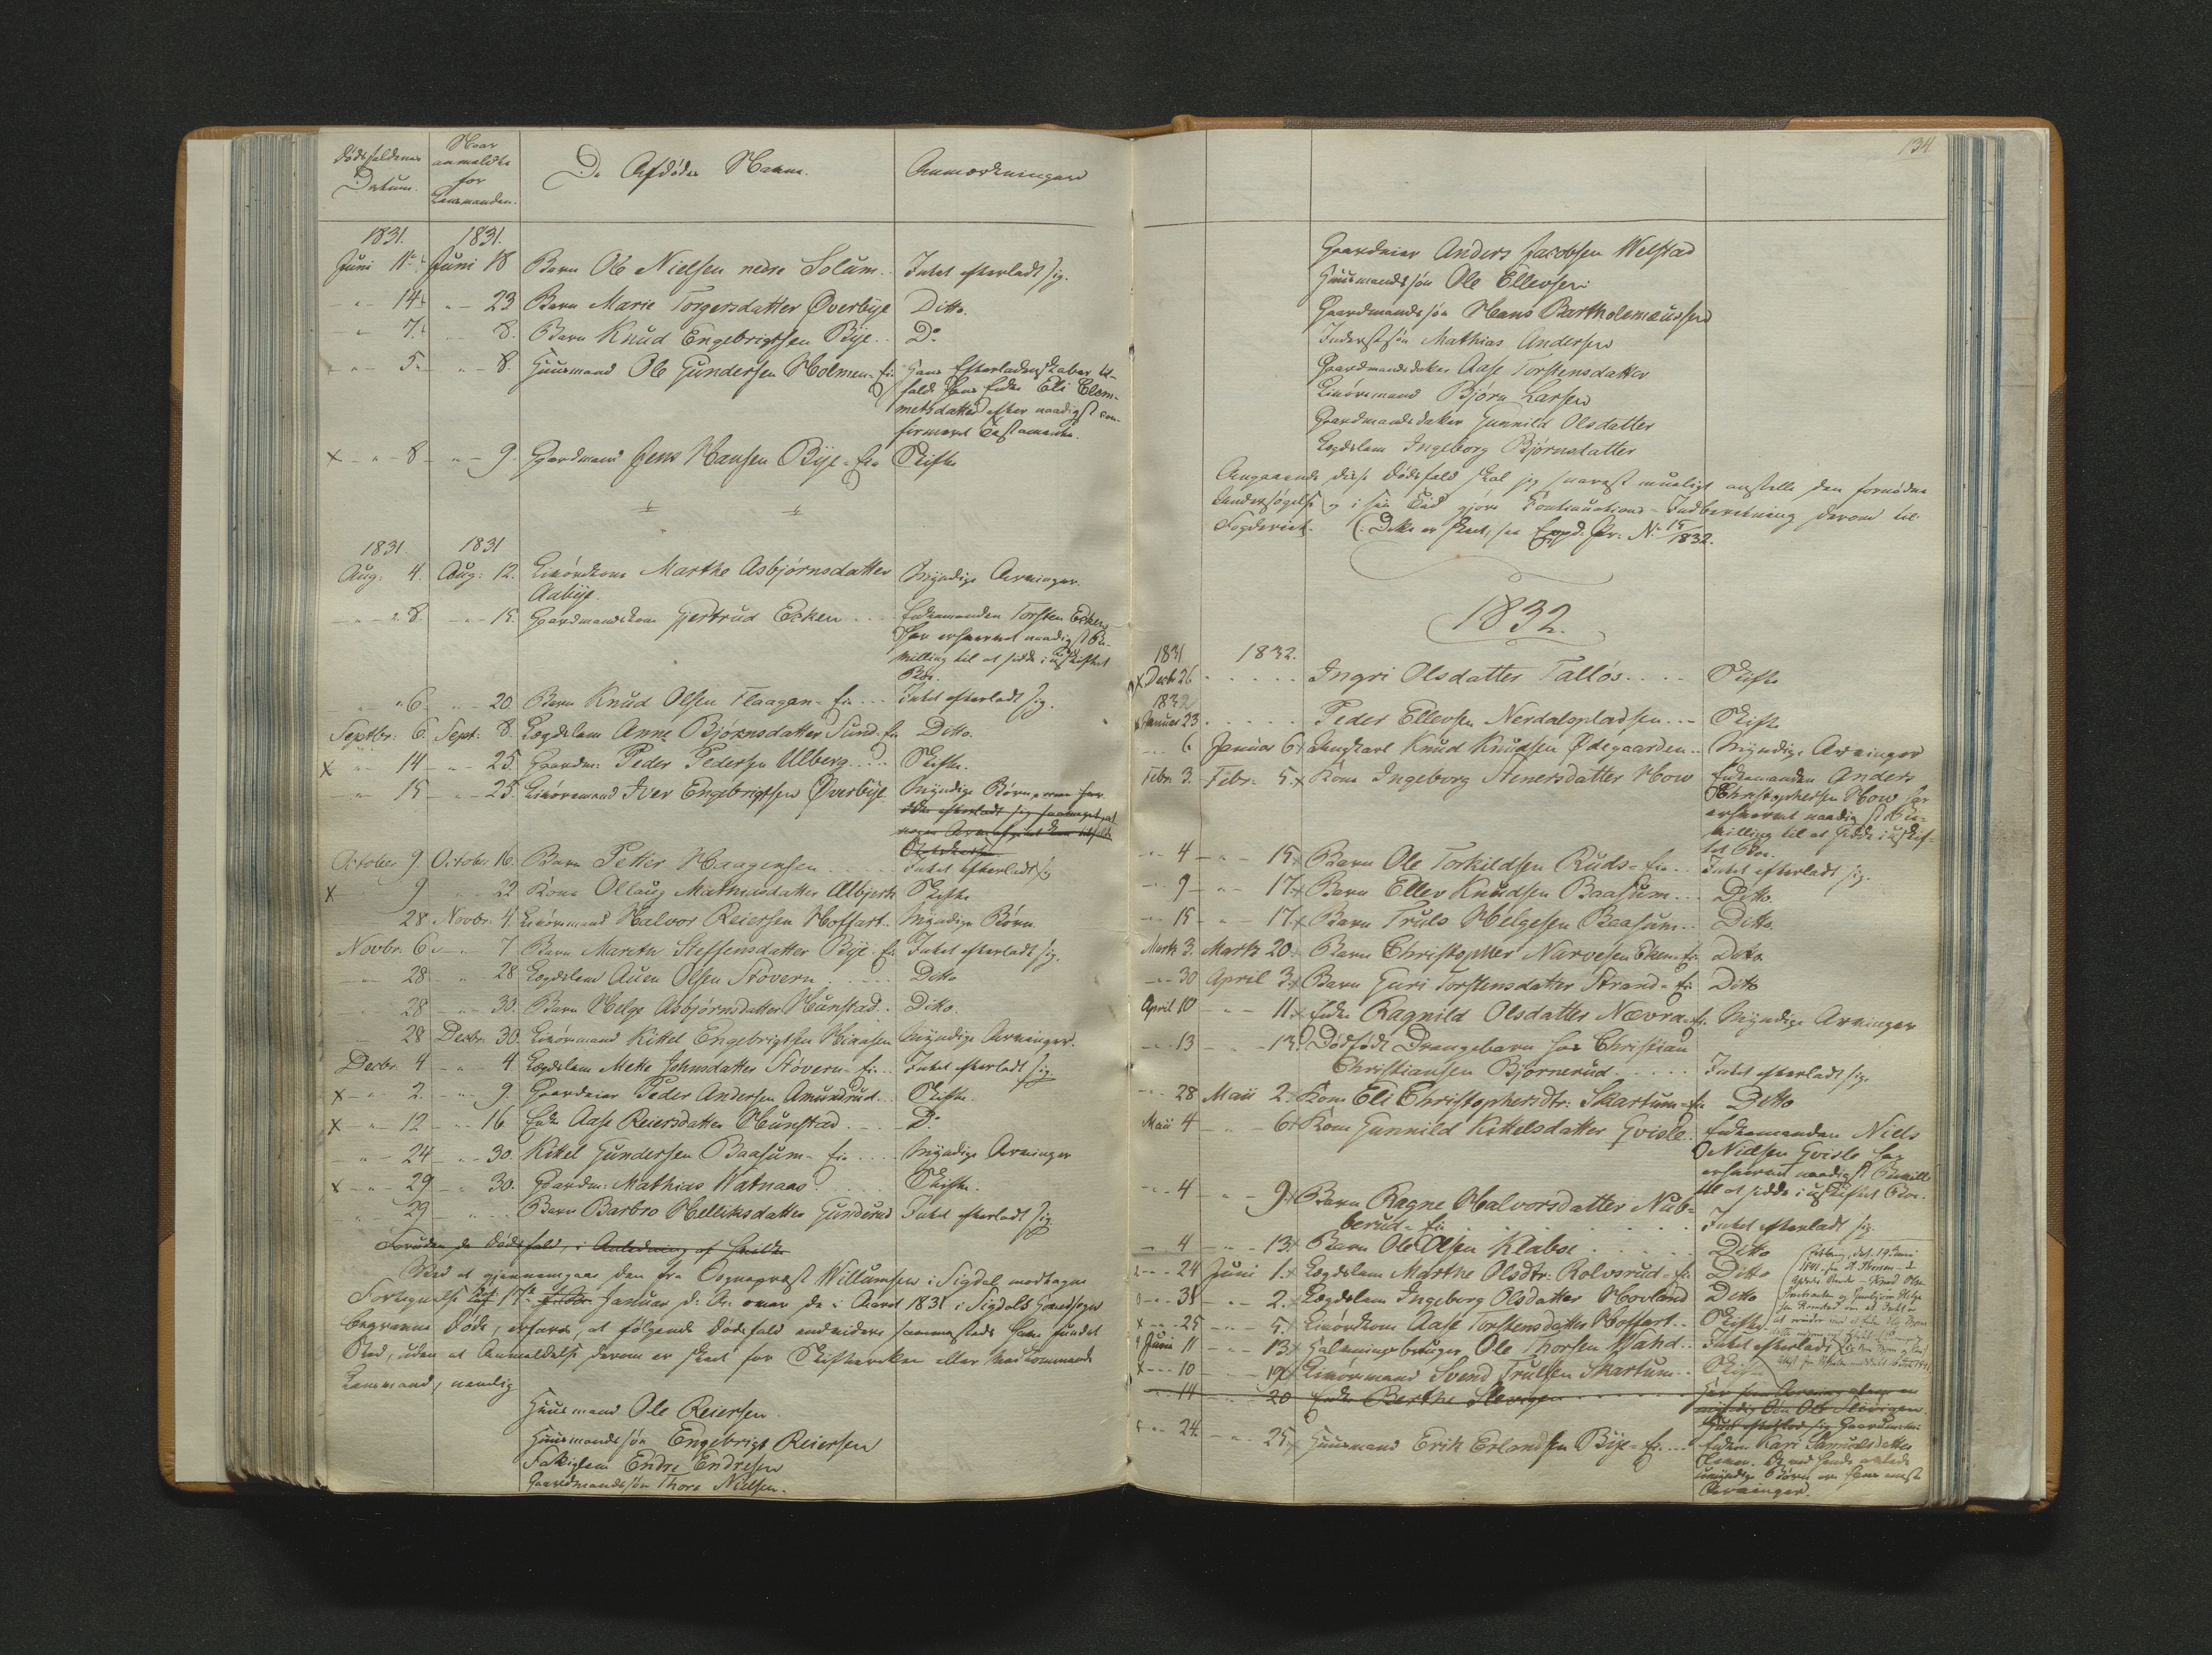 Dödsfaldenes Datum.
Naar anmeldte for Lensmanden.
De Afdödes Navne.
Anmærkninger
1831. 1831.
Juni 11te Juni 18 Barn Ole Nielsen nedre Solum.. Intet efterladt sig.
- " - 14. - " - 23 Barn Marie Torgersdatter Øverbye Ditto.
- " 7. - " - 8. Barn Knud Engebrigtsen Bye.. Do
- " - 5. - " - 8. Huusmand Ole Gundersen Holmen-Ei. Hans Efterladenskaber til-
fald hans Enke Eli Clem-
metsdatter efter naadigst con-
firmeret Testamente.
x - " - 8 - " - 9. Gaardmand Jens Hansen Bye-Ei. Skifte
1831. 1831
Aug: 4. Aug: 12. Leiöerskone Marthe Asbjørnsdatter Myndige Arvinger.
Aabye.
- " - 8. - " - 15. Gaardmandskone Gjertrud Ecken ... Enkemanden Torsten Ecken
har erhvervet naadigst Be-
villing til at sidde i uskiftet
Boe.
" 6 - " - 20. Barn Knud Olsen Flaagan-Ei... Intet efterladt sig.
Septbr: 6. Sept: 8. Lægdslem Anne Bjørnsdatter Sund-Ei Ditto.
x " 14 - " - 25. Gaardm: Peder Pedersen Ulberg.... Skifte.
- " 15 - " - 25. Leiörmand Iver Engebrigtsen Øverbye. Myndige Børn,
October 9. October 16. Barn Petter Haagensen ..... Intet efterladt sig
x 9 " - 22. Kone Ollaug Mathiasdatter Albjerk Skifte
28. Novbr. 4. Leiörmand Halvor Reiersen Hoffart.. Myndige Børn.
Novbr. 6. - " 7 Barn Marith Steffensdatter Bye-Ei Intet efterladt sig.
- " 28 - " 28 Lægdslem Auen Olsen Støvern .... Ditto
28 - " - 30. Barn Helge Asbjørnsdatter Hunstad.. Ditto.
28 Decbr. 30. Leiörmand Kittel Engebrigtsen Myndige Arvinger.
Decbr. 4 - " 4 Lægdslem Mette Johnsdatter Støvern-Ei.. Intet efterladt sig.
x - " 2. - " - 9. Gaardeier Peder Andersen Amundrud... Skifte.
x - " 12 - " - 16 Enke Aase Reiersdatter Hunstad ... Do.
- " - 24 - " - 30. Kittel Gundersen Baasum-Ei .... Myndige Arvinger
x - " - 29 - " 30. Gaardm: Mathias Watnaas. Skifte.
- " 29 - " Barn Barbro Helliksdatter Gunderud Intet efterladt sig
Foruden de Dödsfald, i Anledning af
Ved at gjennemgaae den fra Sognepræst Willumsen i Sigdal modtagne
Fortegnelse 17de Januar d: A: over de i Aaret 1831 i Sigdals Hovedsogn
begravne Døde, erfares, at følgende Dödsfald endvidere sammesteds have fundet
Sted, uden at Anmeldelse derom er skeet for Skifteretten eller vedkommende
Lensmand, nemlig
Huusmand Ole Reiersen.
Huusmandssön Engebrigt Reiersen
Fattiglem Endre Endresen
Gaardmandssön Thore Nielsen.
134
Gaardeier Anders Jacobsen Welstad
Huusmandssön Ole Ellevsen
Gaardmandssön Hans Bartholomæussen
Inderstsön Mathias Andersen
Gaardmandsdatter Aase Torstensdatter
Leiöermand Bjørn Larsen
Gaardmandsdatter Gunnild Olsdatter
Lægdslem Ingeborg Bjørnsdatter
Angaaende disse Dödsfald skal jeg snarest mueligt anstille den fornødne
Undersøgelse og i sin Tid gjöre Continuations-Indberetning derom til
Fogderiet. (: Dette er skeet, see Expd: Pr: No 15/1832.
1832.
1831 1832.
x Decbr 26 ..... Ingri Olsdatter Talløs.... Skifte
1832
x Januar 23 ..... Peder Ellevsen Nerdalspladsen... Skifte
- " 6 Januar 6. x Ungkarl Knud Knudsen Ødegaarden.. Myndige Arvinger
Febr. 3. Febr. 5. x Kone Ingeborg Stenersdatter How Enkemanden Anders
Christophersen How har
erhvervet naadigst Be-
villing til at sidde i uskif-
tet Boe.
- " 4 - " - 15. x Barn Ole Torkildsen Ruds-Ei.. Intet efterladt sig.
- " 9 - " - 17. x Barn Ellev Knudsen Baasum... Ditto.
- " 15 - " 17. x Barn Truls Helgesen Baasum.. Ditto.
Marts 3. Marts 20. Barn Christopher Narvesen Eken-Ei Ditto
- " 30 April 3. x Barn Guri Torstensdatter Strand-Ei Ditto
April 10 - " - 11. x Enke Ragnild Olsdatter Nævra-Ei. Myndige Arvinger
- " 13 - " - 13. Dødfødt Drengebarn hos Christian
Christiansen Bjørnerud ..... Intet efterladt sig.
- " 28 Maii 2. x Kone Eli Christophersdtr: Skartum-Ei Ditto
Maii 4 - " - 6. x Kone Gunnild Kittelsdatter Gvisle. Enkemanden Niels
Nielsen Gvisle har
erhvervet naadigst Bevill:
til at sidde i uskiftet Boe.
- " 4 - " - 9. x Barn Ragne Halvorsdatter Nub-
berud-Ei ...... Intet efterladt sig.
- " 4 - " - 13. x Barn Ole Olsen Klaboe ..... Ditto
- " 24 Juni 1. x Lægdslem Marthe Olsdtr: Rolvsrud-Ei Ditto
- " 31 - " - 2. x Lægdslem Ingeborg Olsdatter Hovland Ditto
x - " 25 - " - 5. x Leiörskone Aase Torstensdatter Hoffart.. Skifte
Juni 11 - " - 13. x Halvningsbruger Ole Thorsen Wahd.. Intet efterladt
x - " 10 - " - 19. x Leiörmand Svend Trulsen Skartum.. Skifte
- " 14 " 20 Enke Berthe Slevigen
- " 24. - " - 25. x Huusmand Erik Erlandsen Bye-Ei.... Enken Kari Samuelsdatter
umyndige Børn ere hans eneste
Arvinger.